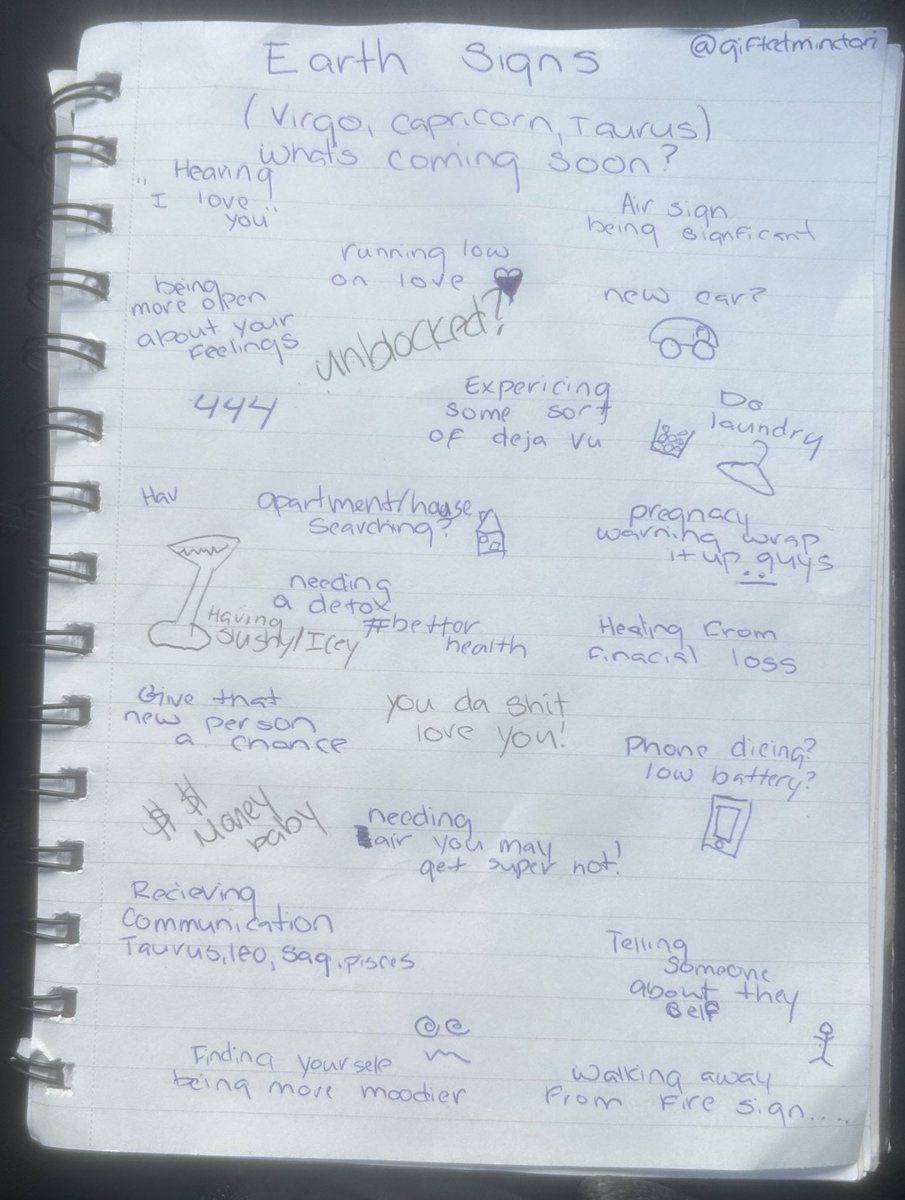 @giftetminctari
Earth Signs
(Virgo, Capricorn, Taurus)
whats coming soon?
"Hearing
I love
you"
Air sign
being signficant
running low
on love
being
more open
about your
feelings
unblocked?
new car?
444
Expericing
some sort
of deja vu
Do
laundry
Hav
apartment/house
searching?
pregnacy
warning wrap
it up guys
needing
a detox
#better
health
Having
Sushy/Icey
Healing from
finacial loss
Give that
new person
a chance
you da shit
love you!
Phone dieing?
low battery?
$ $
Money
baby
needing
air you may
get super hot!
Recieving
Communication
Taurus, leo, Sag, pisces
Telling
Someone
about they
self
Finding yourself
being more moodier
walking away
From Fire sign.....